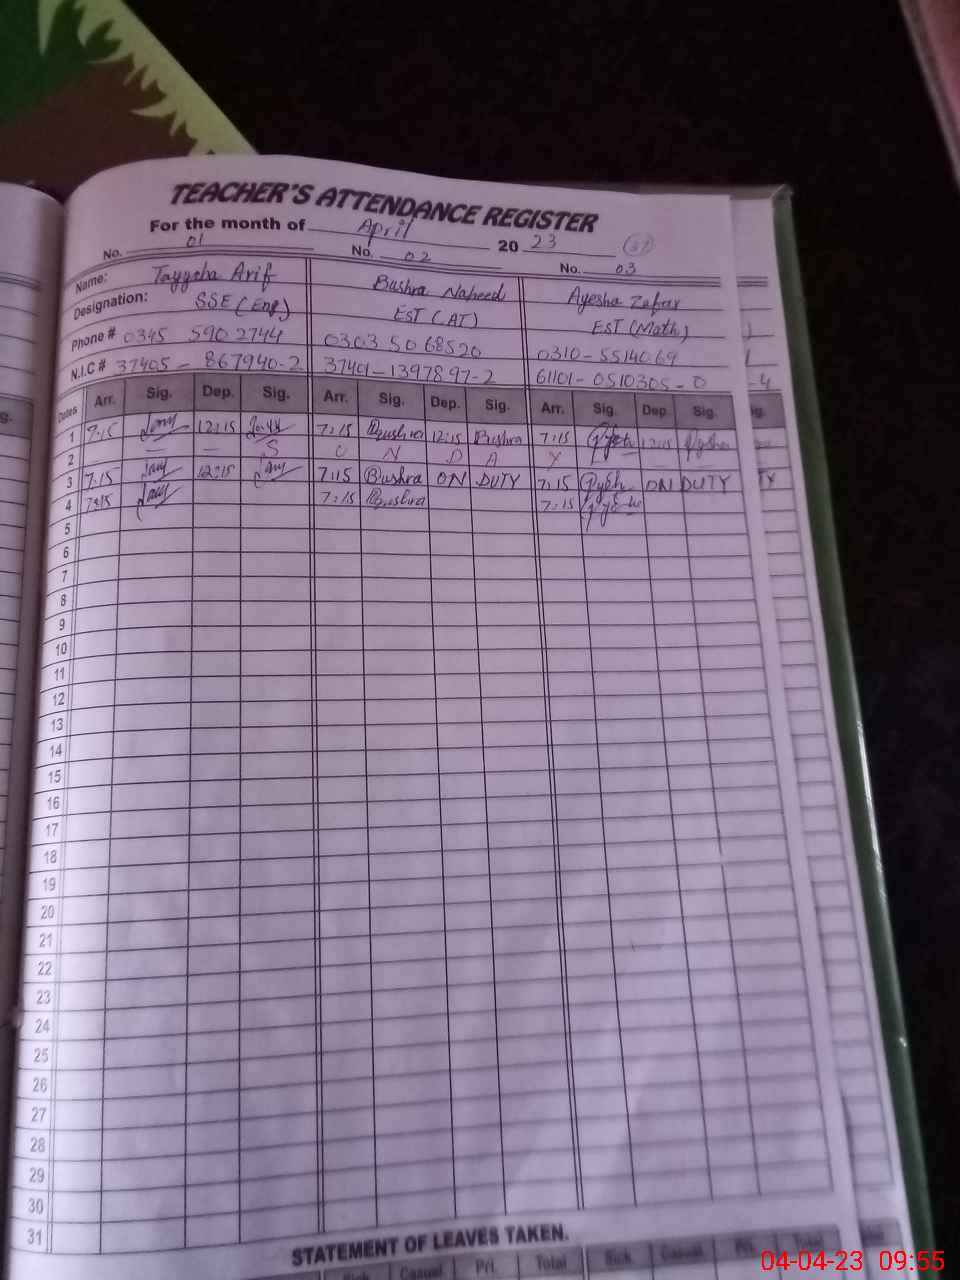 TEACHER'S ATTENDANCE REGISTER
For the month of April 2023
No. 01 No. 02 No. 03
Name: Tayyaba Arif Bushra Naheed Ayesha Zafar
Designation: SSE (Eng) EST (AT) EST (Math)
Phone # 0345 5902744 0303 5068520 0310-5514069
N.I.C # 37405-867940-2 37401-1397897-2 61101-0510305-0 -4
Dates Arr. Sig. Dep. Sig. Arr. Sig. Dep. Sig. Arr. Sig. Dep. Sig. ig.
1 7:15 12:15 7:15 Bushra 12:15 Bushra 7:15 12:15 Aysha
2 — — — S U N D A Y
3 7:15 12:15 7:15 Bushra ON DUTY 7:15 ON DUTY TY
4 7:15 7:15 Bushra 7:15
5
6
7
8
9
10
11
12
13
14
15
16
17
18
19
20
21
22
23
24
25
26
27
28
29
30
31
STATEMENT OF LEAVES TAKEN.
Sick Casual Pri. Total Sick Casual Pri. Total
04-04-23 09:55